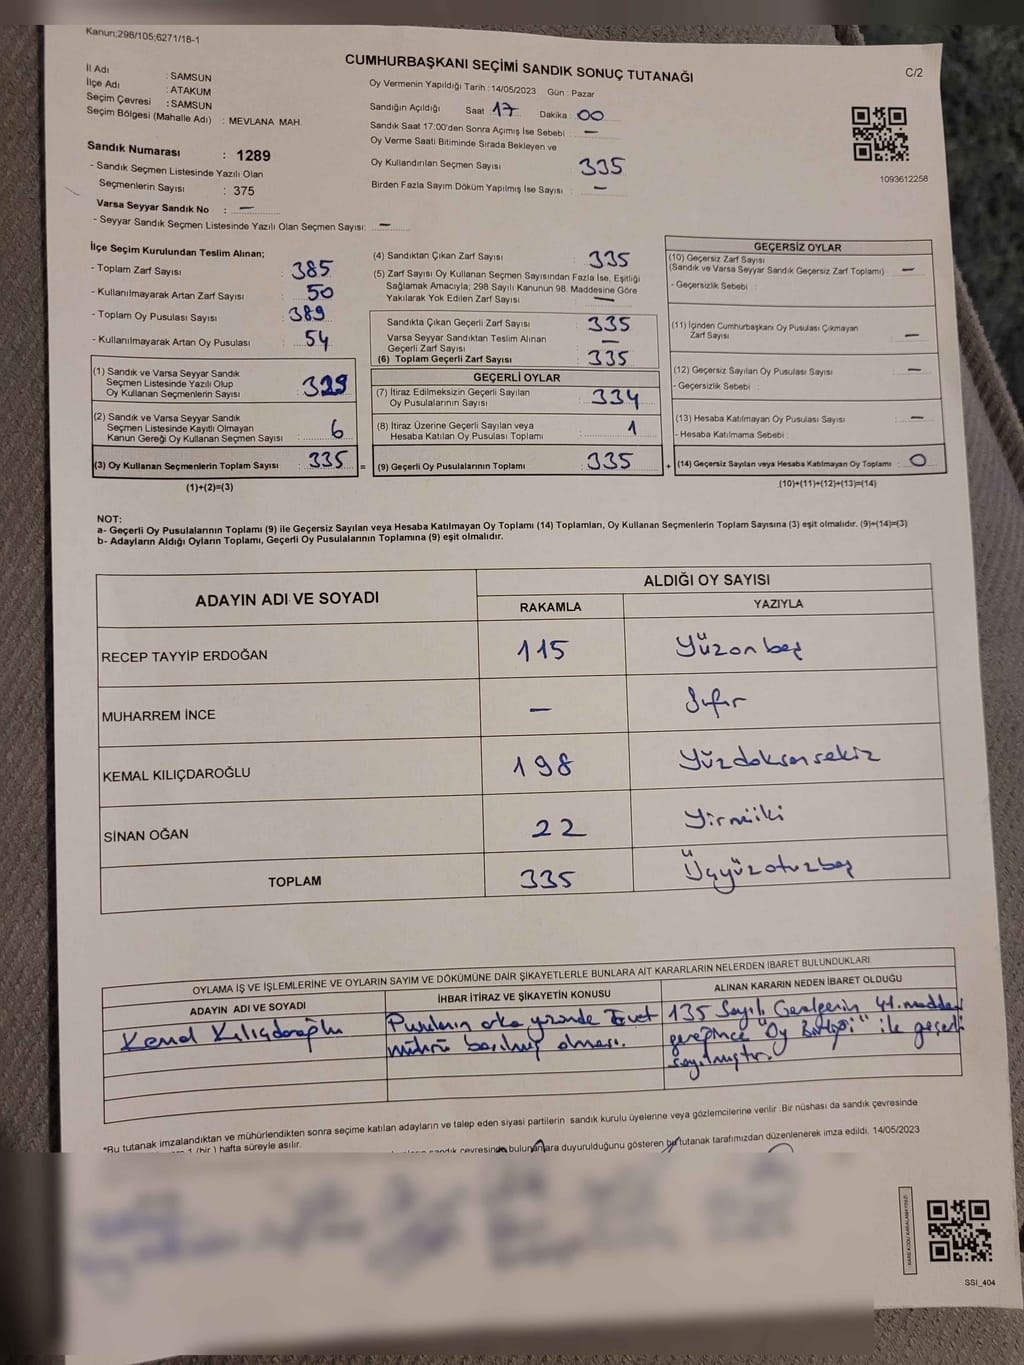 Kanun;298/105;6271/18-1
CUMHURBAŞKANI SEÇİMİ SANDIK SONUÇ TUTANAĞI
C/2
İl Adı : SAMSUN
İlçe Adı : ATAKUM
Seçim Çevresi : SAMSUN
Seçim Bölgesi (Mahalle Adı) : MEVLANA MAH.
Oy Vermenin Yapıldığı Tarih : 14/05/2023 Gün : Pazar
Sandığın Açıldığı Saat 17 Dakika : 00
Sandık Saat 17:00'den Sonra Açımış İse Sebebi : —
Oy Verme Saati Bitiminde Sırada Bekleyen ve
Oy Kullandırılan Seçmen Sayısı : 335
Birden Fazla Sayım Döküm Yapılmış İse Sayısı : —
1093612258
Sandık Numarası : 1289
- Sandık Seçmen Listesinde Yazılı Olan
Seçmenlerin Sayısı : 375
Varsa Seyyar Sandık No : —
- Seyyar Sandık Seçmen Listesinde Yazılı Olan Seçmen Sayısı: —
İlçe Seçim Kurulundan Teslim Alınan;
- Toplam Zarf Sayısı : 385
- Kullanılmayarak Artan Zarf Sayısı : 50
- Toplam Oy Pusulası Sayısı : 389
- Kullanılmayarak Artan Oy Pusulası : 54
(1) Sandık ve Varsa Seyyar Sandık
Seçmen Listesinde Yazılı Olup
Oy Kullanan Seçmenlerin Sayısı : 329
(2) Sandık ve Varsa Seyyar Sandık
Seçmen Listesinde Kayıtlı Olmayan
Kanun Gereği Oy Kullanan Seçmen Sayısı : 6
(3) Oy Kullanan Seçmenlerin Toplam Sayısı : 335 =
(1)+(2)=(3)
(4) Sandıktan Çıkan Zarf Sayısı : 335
(5) Zarf Sayısı Oy Kullanan Seçmen Sayısından Fazla İse, Eşitliği
Sağlamak Amacıyla; 298 Sayılı Kanunun 98. Maddesine Göre
Yakılarak Yok Edilen Zarf Sayısı : —
Sandıkta Çıkan Geçerli Zarf Sayısı : 335
Varsa Seyyar Sandıktan Teslim Alınan
Geçerli Zarf Sayısı : —
(6) Toplam Geçerli Zarf Sayısı : 335
GEÇERLİ OYLAR
(7) İtiraz Edilmeksizin Geçerli Sayılan
Oy Pusulalarının Sayısı : 334
(8) İtiraz Üzerine Geçerli Sayılan veya
Hesaba Katılan Oy Pusulası Toplamı : 1
(9) Geçerli Oy Pusulalarının Toplamı : 335 +
GEÇERSİZ OYLAR
(10) Geçersiz Zarf Sayısı
(Sandık ve Varsa Seyyar Sandık Geçersiz Zarf Toplamı) : —
- Geçersizlik Sebebi :
(11) İçinden Cumhurbaşkanı Oy Pusulası Çıkmayan
Zarf Sayısı : —
(12) Geçersiz Sayılan Oy Pusulası Sayısı : —
- Geçersizlik Sebebi :
(13) Hesaba Katılmayan Oy Pusulası Sayısı : —
- Hesaba Katılmama Sebebi :
(14) Geçersiz Sayılan veya Hesaba Katılmayan Oy Toplamı : 0
(10)+(11)+(12)+(13)=(14)
NOT:
a- Geçerli Oy Pusulalarının Toplamı (9) ile Geçersiz Sayılan veya Hesaba Katılmayan Oy Toplamı (14) Toplamları, Oy Kullanan Seçmenlerin Toplam Sayısına (3) eşit olmalıdır. (9)+(14)=(3)
b- Adayların Aldığı Oyların Toplamı, Geçerli Oy Pusulalarının Toplamına (9) eşit olmalıdır.
ADAYIN ADI VE SOYADI ALDIĞI OY SAYISI
RAKAMLA YAZIYLA
RECEP TAYYİP ERDOĞAN 115 Yüzonbeş
MUHARREM İNCE — Sıfır
KEMAL KILIÇDAROĞLU 198 Yüzdoksansekiz
SİNAN OĞAN 22 Yirmiiki
TOPLAM 335 Üçyüzotuzbeş
OYLAMA İŞ VE İŞLEMLERİNE VE OYLARIN SAYIM VE DÖKÜMÜNE DAİR ŞİKAYETLERLE BUNLARA AİT KARARLARIN NELERDEN İBARET BULUNDUKLARI
ADAYIN ADI VE SOYADI İHBAR İTİRAZ VE ŞİKAYETİN KONUSU ALINAN KARARIN NEDEN İBARET OLDUĞU
Kemal Kılıçdaroğlu Pusulanın arka yüzünde Evet 135 Sayılı Genelgenin 41. maddesi
mührü basılmış olması. gereğince "Oy Birliği" ile geçerli
sayılmıştır.
*Bu tutanak imzalandıktan ve mühürlendikten sonra seçime katılan adayların ve talep eden siyasi partilerin sandık kurulu üyelerine veya gözlemcilerine verilir. Bir nüshası da sandık çevresinde
1 (bir) hafta süreyle asılır.
sandık çevresinde bulunanlara duyurulduğunu gösteren bu tutanak tarafımızdan düzenlenerek imza edildi. 14/05/2023
SSI_404